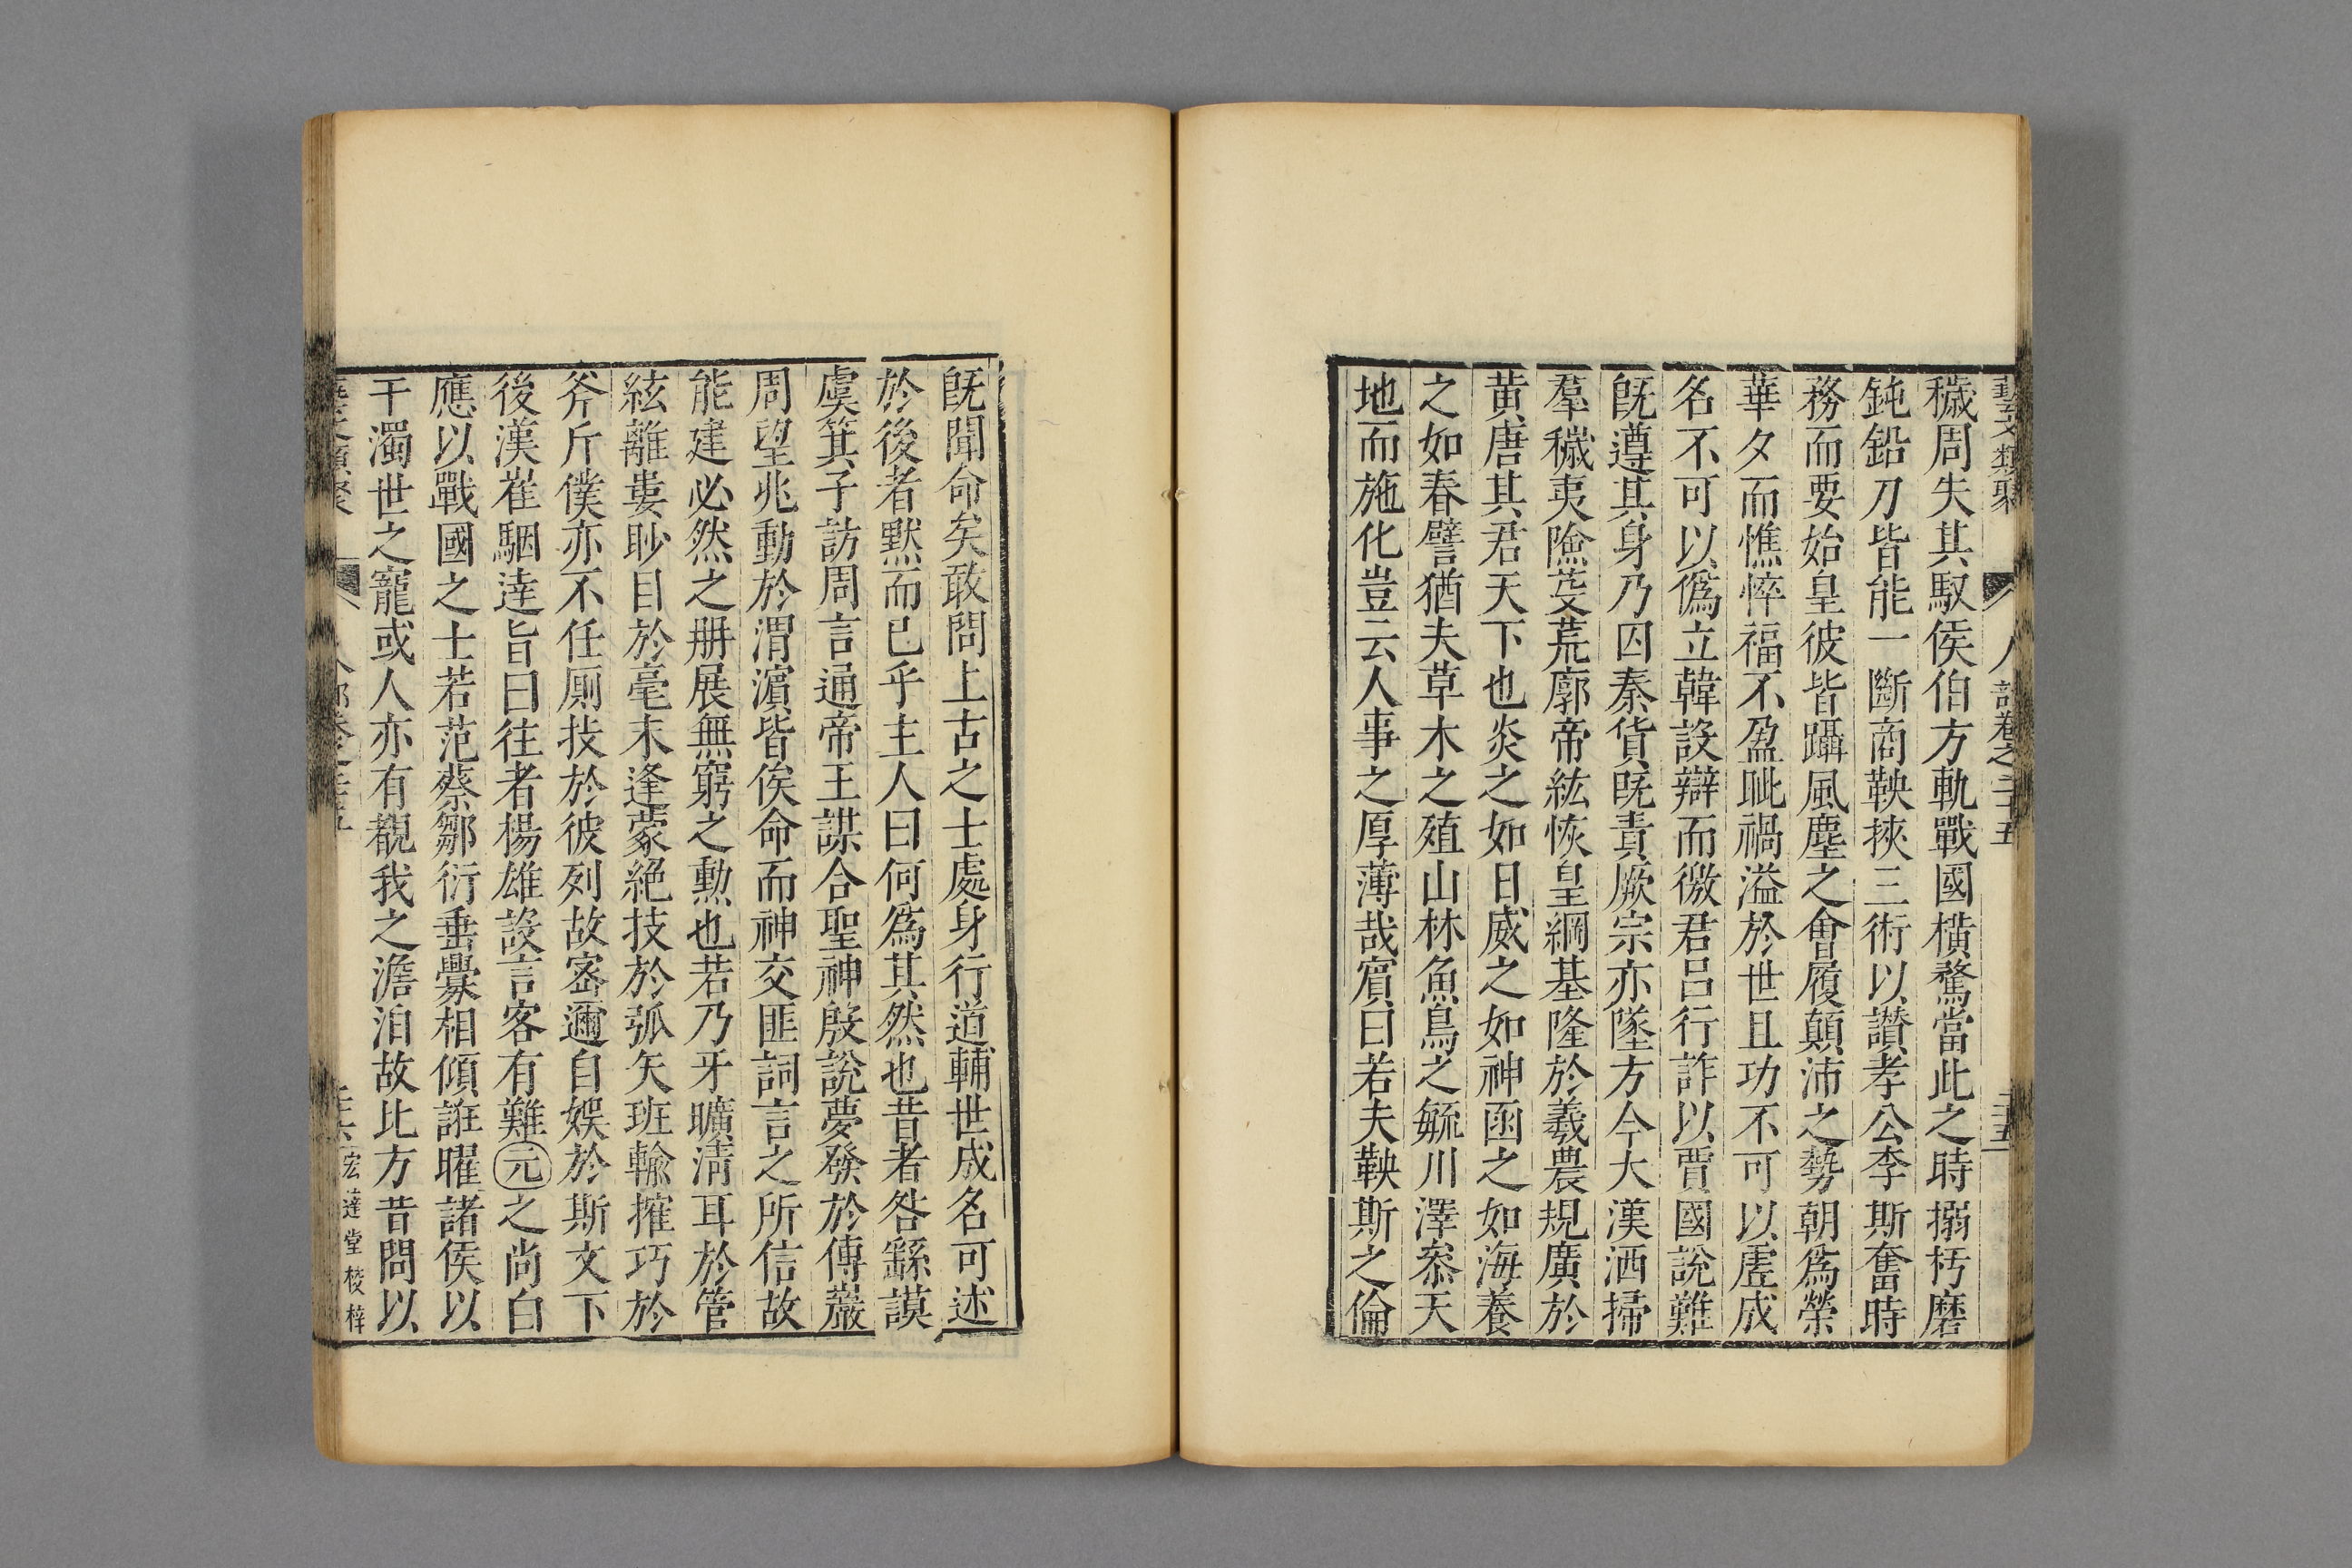 藝文類聚 人部卷之二十五 二十五
穢周失其馭侯伯方軌戰國橫騖當此之時搦朽磨
鈍鉛刀皆能一斷商鞅挾三術以讚孝公李斯奮時
務而要始皇彼皆躡風塵之會履顛沛之勢朝爲榮
華夕而憔悴福不盈眦禍溢於世且功不可以虛成
名不可以僞立韓設辯而徼君呂行詐以賈國說難
旣遵其身乃囚秦貨旣責厥宗亦墜方今大漢洒掃
羣穢夷險芟荒廓帝紘恢皇綱基隆於羲農規廣於
黃唐其君天下也炎之如日威之如神函之如海養
之如春譬猶夫草木之殖山林魚鳥之毓川澤叅天
地而施化豈云人事之厚薄哉賔曰若夫鞅斯之倫
旣聞命矣敢問上古之士處身行道輔世成名可述
於後者黙而已乎主人曰何爲其然也昔者咎繇謨
虞箕子訪周言通帝王謀合聖神殷說夢發於傅巖
周望兆動於渭濵皆俟命而神交匪詞言之所信故
能建必然之册展無窮之勳也若乃牙曠淸耳於管
絃離婁眇目於毫末逢蒙絕技於弧矢班輸搉巧於
斧斤僕亦不任厠技於彼列故宻邇自娛於斯文下
後漢崔駰達旨曰往者楊雄設言客有難元之尚白
應以戰國之士若范蔡鄒衍垂釁相傾誑曜諸侯以
干濁世之寵或人亦有覩我之澹泊故比方昔問以
藝文類聚 人部卷之二十五 宏達堂校梓